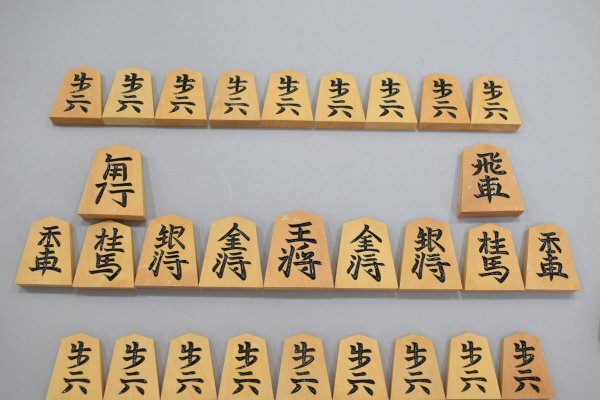 歩兵 歩兵 歩兵 歩兵 歩兵 歩兵 歩兵 歩兵 歩兵
角行 飛車
香車 桂馬 銀将 金将 王将 金将 銀将 桂馬 香車
歩兵 歩兵 歩兵 歩兵 歩兵 歩兵 歩兵 歩兵 歩兵